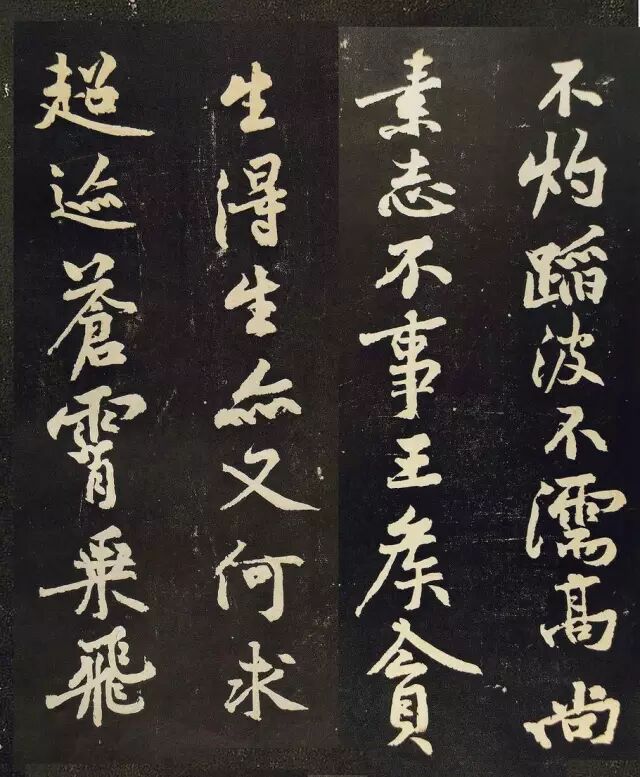 不灼蹈波不濡髙尚
素志不事王矦貪
生得生亦又何求
超迹蒼霄乗飛